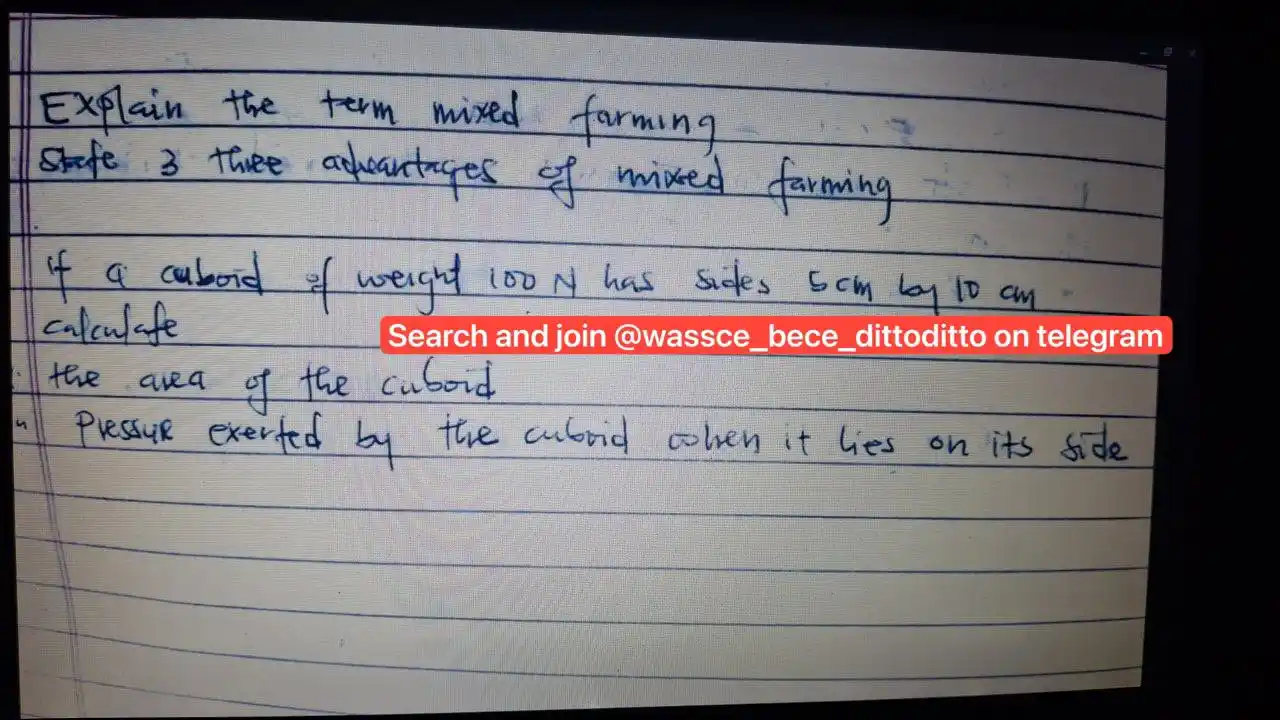 Explain the term mixed farming
State 3 three advantages of mixed farming
if a cuboid of weight 100 N has sides 5 cm by 10 cm
calculate
Search and join @wassce_bece_dittoditto on telegram
the area of the cuboid
Pressure exerted by the cuboid when it lies on its side